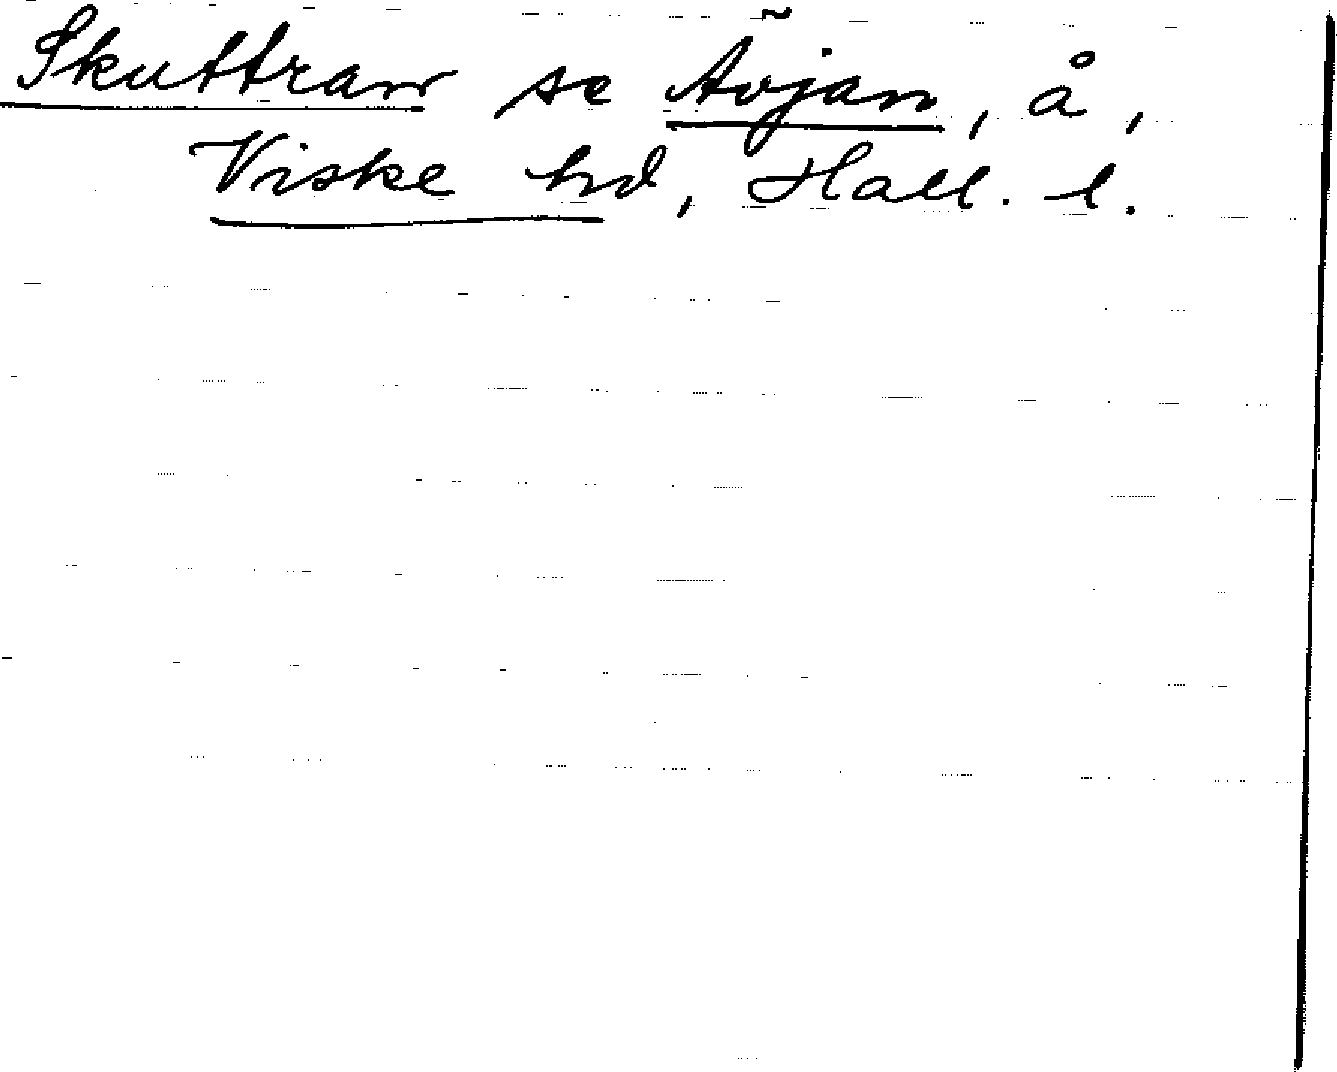 Skuttran se Avjan, å,
Viske hd, Hall. l.